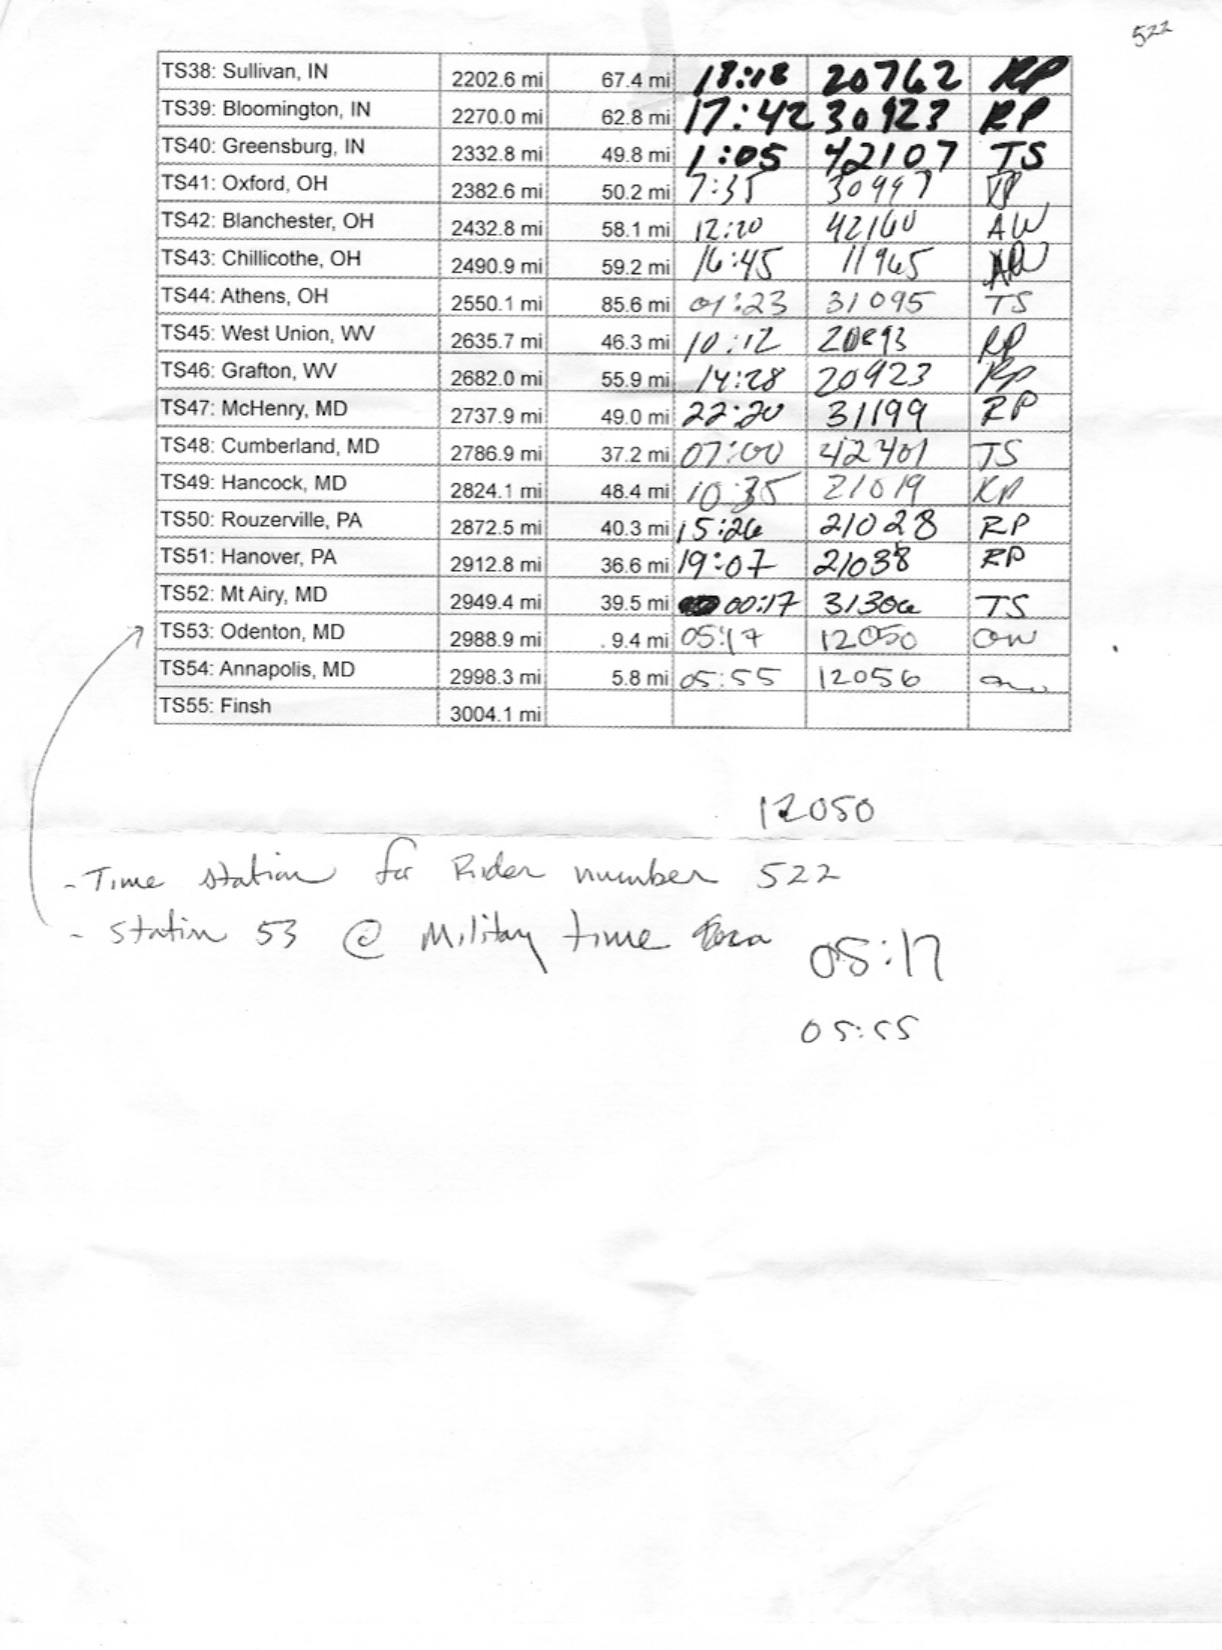 522
TS38: Sullivan, IN 2202.6 mi 67.4 mi 13:18 20762 RP
TS39: Bloomington, IN 2270.0 mi 62.8 mi 17:42 30923 RP
TS40: Greensburg, IN 2332.8 mi 49.8 mi 1:05 42107 TS
TS41: Oxford, OH 2382.6 mi 50.2 mi 7:35 30997 RP
TS42: Blanchester, OH 2432.8 mi 58.1 mi 12:20 42160 AW
TS43: Chillicothe, OH 2490.9 mi 59.2 mi 16:45 11965 AW
TS44: Athens, OH 2550.1 mi 85.6 mi 01:23 31095 TS
TS45: West Union, WV 2635.7 mi 46.3 mi 10:12 RP
TS46: Grafton, WV 2682.0 mi 55.9 mi 14:28 20923 RP
TS47: McHenry, MD 2737.9 mi 49.0 mi 22:20 31199 RP
TS48: Cumberland, MD 2786.9 mi 37.2 mi 07:00 42401 TS
TS49: Hancock, MD 2824.1 mi 48.4 mi 10:35 21019 RP
TS50: Rouzerville, PA 2872.5 mi 40.3 mi 15:26 21028 RP
TS51: Hanover, PA 2912.8 mi 36.6 mi 19:07 21038 RP
TS52: Mt Airy, MD 2949.4 mi 39.5 mi 00:17 31306 TS
TS53: Odenton, MD 2988.9 mi 9.4 mi 05:17 12050
TS54: Annapolis, MD 2998.3 mi 5.8 mi 05:55 12056
TS55: Finsh 3004.1 mi
12050
- Time station for Rider number 522
- Station 53 @ Military time 05:17
05:55